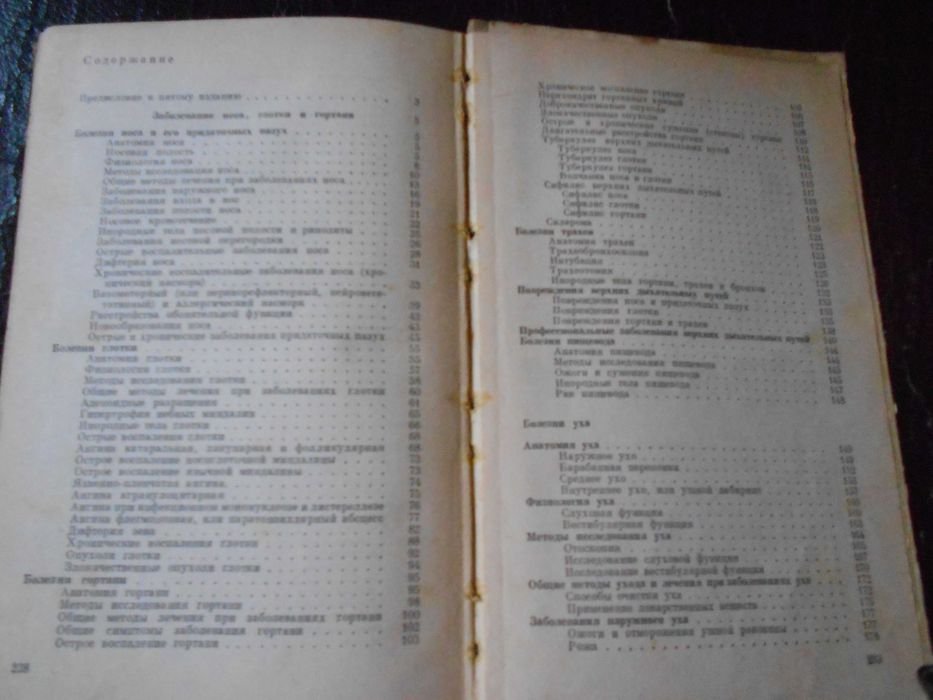 Содержание
Предисловие к пятому изданию . . . . . . . . . . . . . . . 3
Заболевания носа, глотки и гортани 5
Болезни носа и его придаточных пазух . . . . . . . . . 5
Анатомия носа . . . . . . . . . . . . . . . . . . 5
Носовая полость . . . . . . . . . . . . . . . . . 5
Физиология носа . . . . . . . . . . . . . . . . . 8
Методы исследования носа . . . . . . . . . . . . . 10
Общие методы лечения при заболеваниях носа . . . . 13
Заболевания наружного носа . . . . . . . . . . . . 16
Заболевания входа в нос . . . . . . . . . . . . . 19
Заболевания полости носа . . . . . . . . . . . . . 21
Носовое кровотечение . . . . . . . . . . . . . . . 22
Инородные тела носовой полости и ринолиты . . . . 25
Заболевания носовой перегородки . . . . . . . . . 26
Острые воспалительные заболевания носа . . . . . . 28
Дифтерия носа . . . . . . . . . . . . . . . . . . 31
Хронические воспалительные заболевания носа (хро-
нический насморк) . . . . . . . . . . . . . . . 33
Вазомоторный (или нервнорефлекторный, нейровеге-
тативный) и аллергический насморк . . . . . . . 39
Расстройства обонятельной функции . . . . . . . . 43
Новообразования носа . . . . . . . . . . . . . . . 43
Острые и хронические заболевания придаточных пазух 45
Болезни глотки . . . . . . . . . . . . . . . . . . . 55
Анатомия глотки . . . . . . . . . . . . . . . . . 55
Физиология глотки . . . . . . . . . . . . . . . . 57
Методы исследования глотки . . . . . . . . . . . . 58
Общие методы лечения при заболеваниях глотки 60
Аденоидные разращения . . . . . . . . . . . . . . 61
Гипертрофия небных миндалин . . . . . . . . . . . 65
Инородные тела глотки . . . . . . . . . . . . . . 66
Острые воспаления глотки . . . . . . . . . . . . . 68
Ангина катаральная, лакунарная и фолликулярная 68
Острое воспаление носоглоточной миндалины . . . . 73
Острое воспаление язычной миндалины . . . . . . . 73
Язвенно-пленчатая ангина . . . . . . . . . . . . . 74
Ангина агранулоцитарная . . . . . . . . . . . . . 75
Ангина при инфекционном мононуклеозе и листереллезе 76
Ангина флегмонозная, или паратонзиллярный абсцесс 77
Дифтерия зева . . . . . . . . . . . . . . . . . . 82
Хронические воспаления глотки . . . . . . . . . . 88
Опухоли глотки . . . . . . . . . . . . . . . . . . 92
Злокачественные опухоли глотки . . . . . . . . . . 94
Болезни гортани . . . . . . . . . . . . . . . . . . 95
Анатомия гортани . . . . . . . . . . . . . . . . . 95
Методы исследования гортани . . . . . . . . . . . 98
Общие методы лечения при заболеваниях гортани 100
Общие симптомы заболевания гортани . . . . . . . . 102
Острое воспаление гортани . . . . . . . . . . . . 103
238
Хроническое воспаление гортани
Перихондрит гортанных хрящей
Доброкачественные опухоли
Злокачественные опухоли
Острые и хронические сужения (стенозы) гортани
Двигательные расстройства гортани
Туберкулез верхних дыхательных путей
Туберкулез носа
Туберкулез глотки
Туберкулез гортани
Волчанка носа и глотки
Сифилис верхних дыхательных путей
Сифилис носа
Сифилис глотки
Сифилис гортани
Склерома
Болезни трахеи
Анатомия трахеи
Трахеобронхоскопия
Интубация
Трахеотомия
Инородные тела гортани, трахеи и бронхов
Повреждения верхних дыхательных путей
Повреждения носа и придаточных пазух
Повреждения глотки
Повреждения гортани и трахеи
Профессиональные заболевания верхних дыхательных путей
Болезни пищевода
Анатомия пищевода
Методы исследования пищевода
Ожоги и сужения пищевода
Инородные тела пищевода
Рак пищевода
Болезни уха
Анатомия уха
Наружное ухо
Барабанная перепонка
Среднее ухо
Внутреннее ухо, или ушной лабиринт
Физиология уха
Слуховая функция
Вестибулярная функция
Методы исследования уха
Отоскопия
Исследование слуховой функции
Исследование вестибулярной функции
Общие методы ухода и лечения при заболеваниях уха
Способы очистки уха
Применение лекарственных веществ
Заболевания наружного уха
Ожоги и отморожения ушной раковины
Рожа